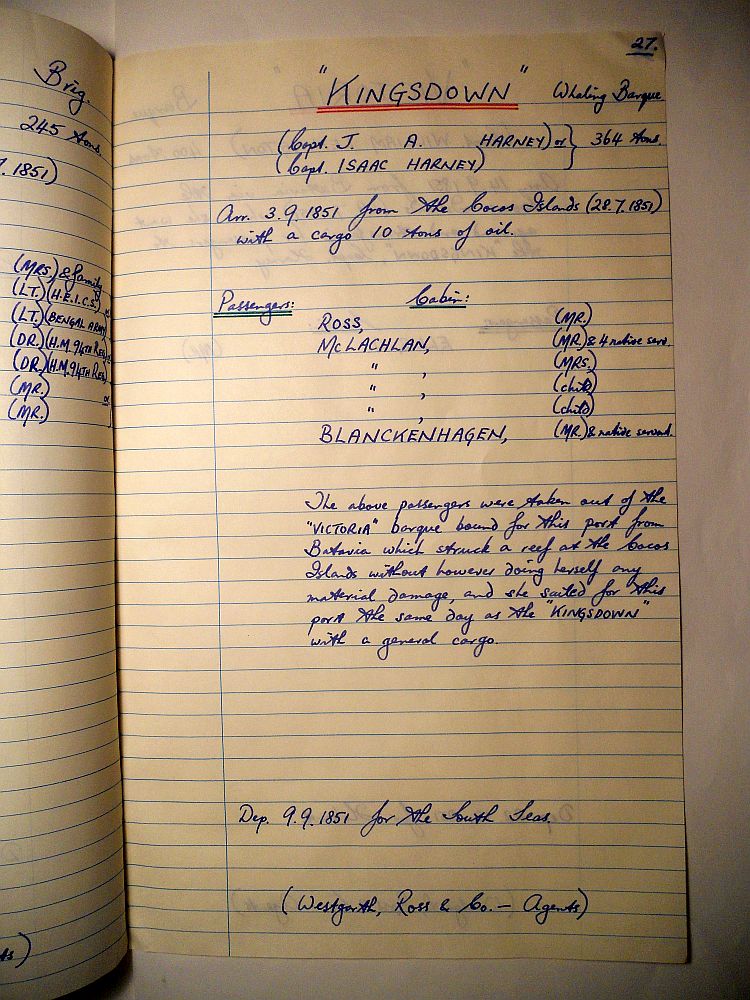 Brig.
245 tons.
. 1851)
(MRS.) & family
(LT.) (H.E.I.C.S.)
(LT.) (BENGAL ARMY)
(DR.) (H.M. 94TH REG.)
(DR.) (H.M. 94TH REG.)
(MR.)
(MR.)
27.
"KINGSDOWN" Whaling Barque
(Capt. J. A. HARNEY) or } 364 tons.
(Capt. ISAAC HARNEY)
Arr. 3.9.1851 from the Cocos Islands (28.7.1851)
with a cargo 10 tons of oil.
Passengers: Cabin:
ROSS, (MR.)
MCLACHLAN, (MR.) & 4 native serv.
" , (MRS.)
" , (child)
" , (child)
BLANCKENHAGEN, (MR.) & native servant.
The above passengers were taken out of the
"VICTORIA" barque bound for this port from
Batavia which struck a reef at the Cocos
Islands without however doing herself any
material damage, and she sailed for this
port the same day as the "KINGSDOWN"
with a general cargo.
Dep. 9.9.1851 for the South Seas.
(Westgarth, Ross & Co. - Agents)